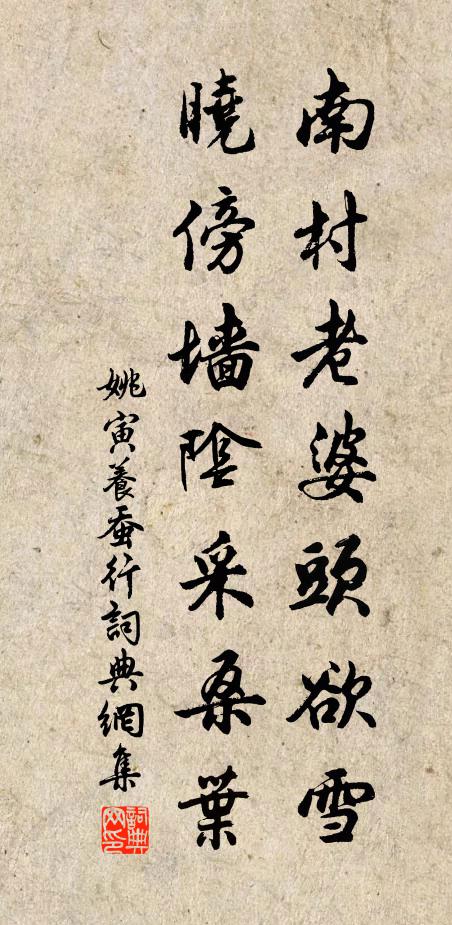 南村老婆頭欲雪
曉傍墻陰采桑葉
姚寅養蚕行詞典網集
詞典網印